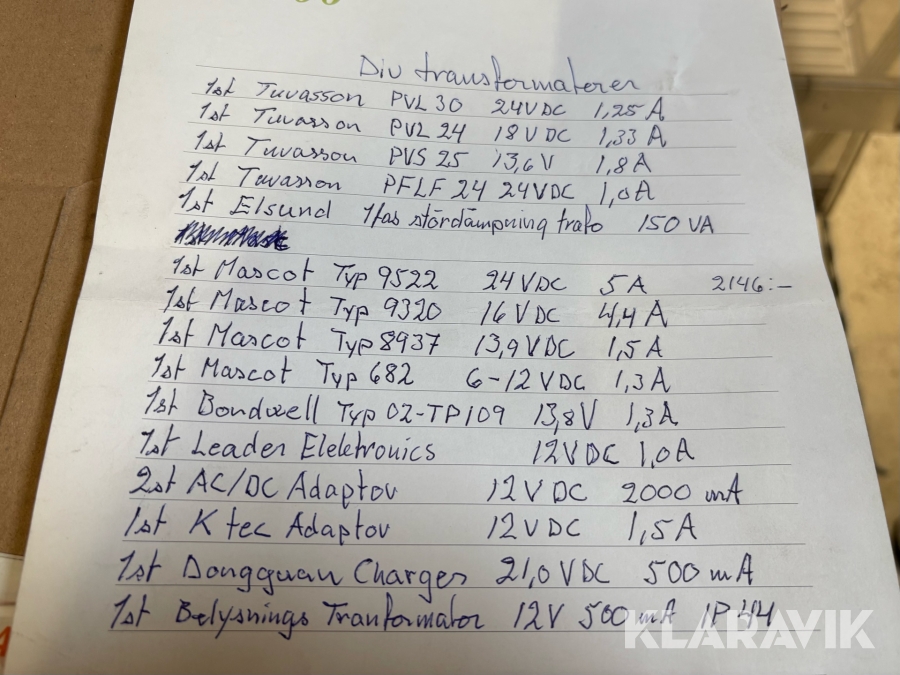 Div transformatorer
1st Tuvasson PVL 30 24VDC 1,25 A
1st Tuvasson PVL 24 18VDC 1,33 A
1st Tuvasson PVS 25 13,6V 1,8 A
1st Tuvasson PFLF 24 24VDC 1,0A
1st Elsund 1fas stördämpning trafo 150 VA
1st Mascot Typ 9522 24VDC 5A 2146:-
1st Mascot Typ 9320 16VDC 4,4A
1st Mascot Typ 8937 13,9VDC 1,5 A
1st Mascot Typ 682 6-12VDC 1,3A
1st Bondwell Typ 02-TP109 13,8V 1,3A
1st Leader Elektronics 12VDC 1,0A
2st AC/DC Adaptor 12VDC 2000 mA
1st K tec Adaptor 12VDC 1,5A
1st Dongguan Charges 21,0VDC 500 mA
1st Belysnings Tranformator 12V 500 mA IP44
KLARAVIK